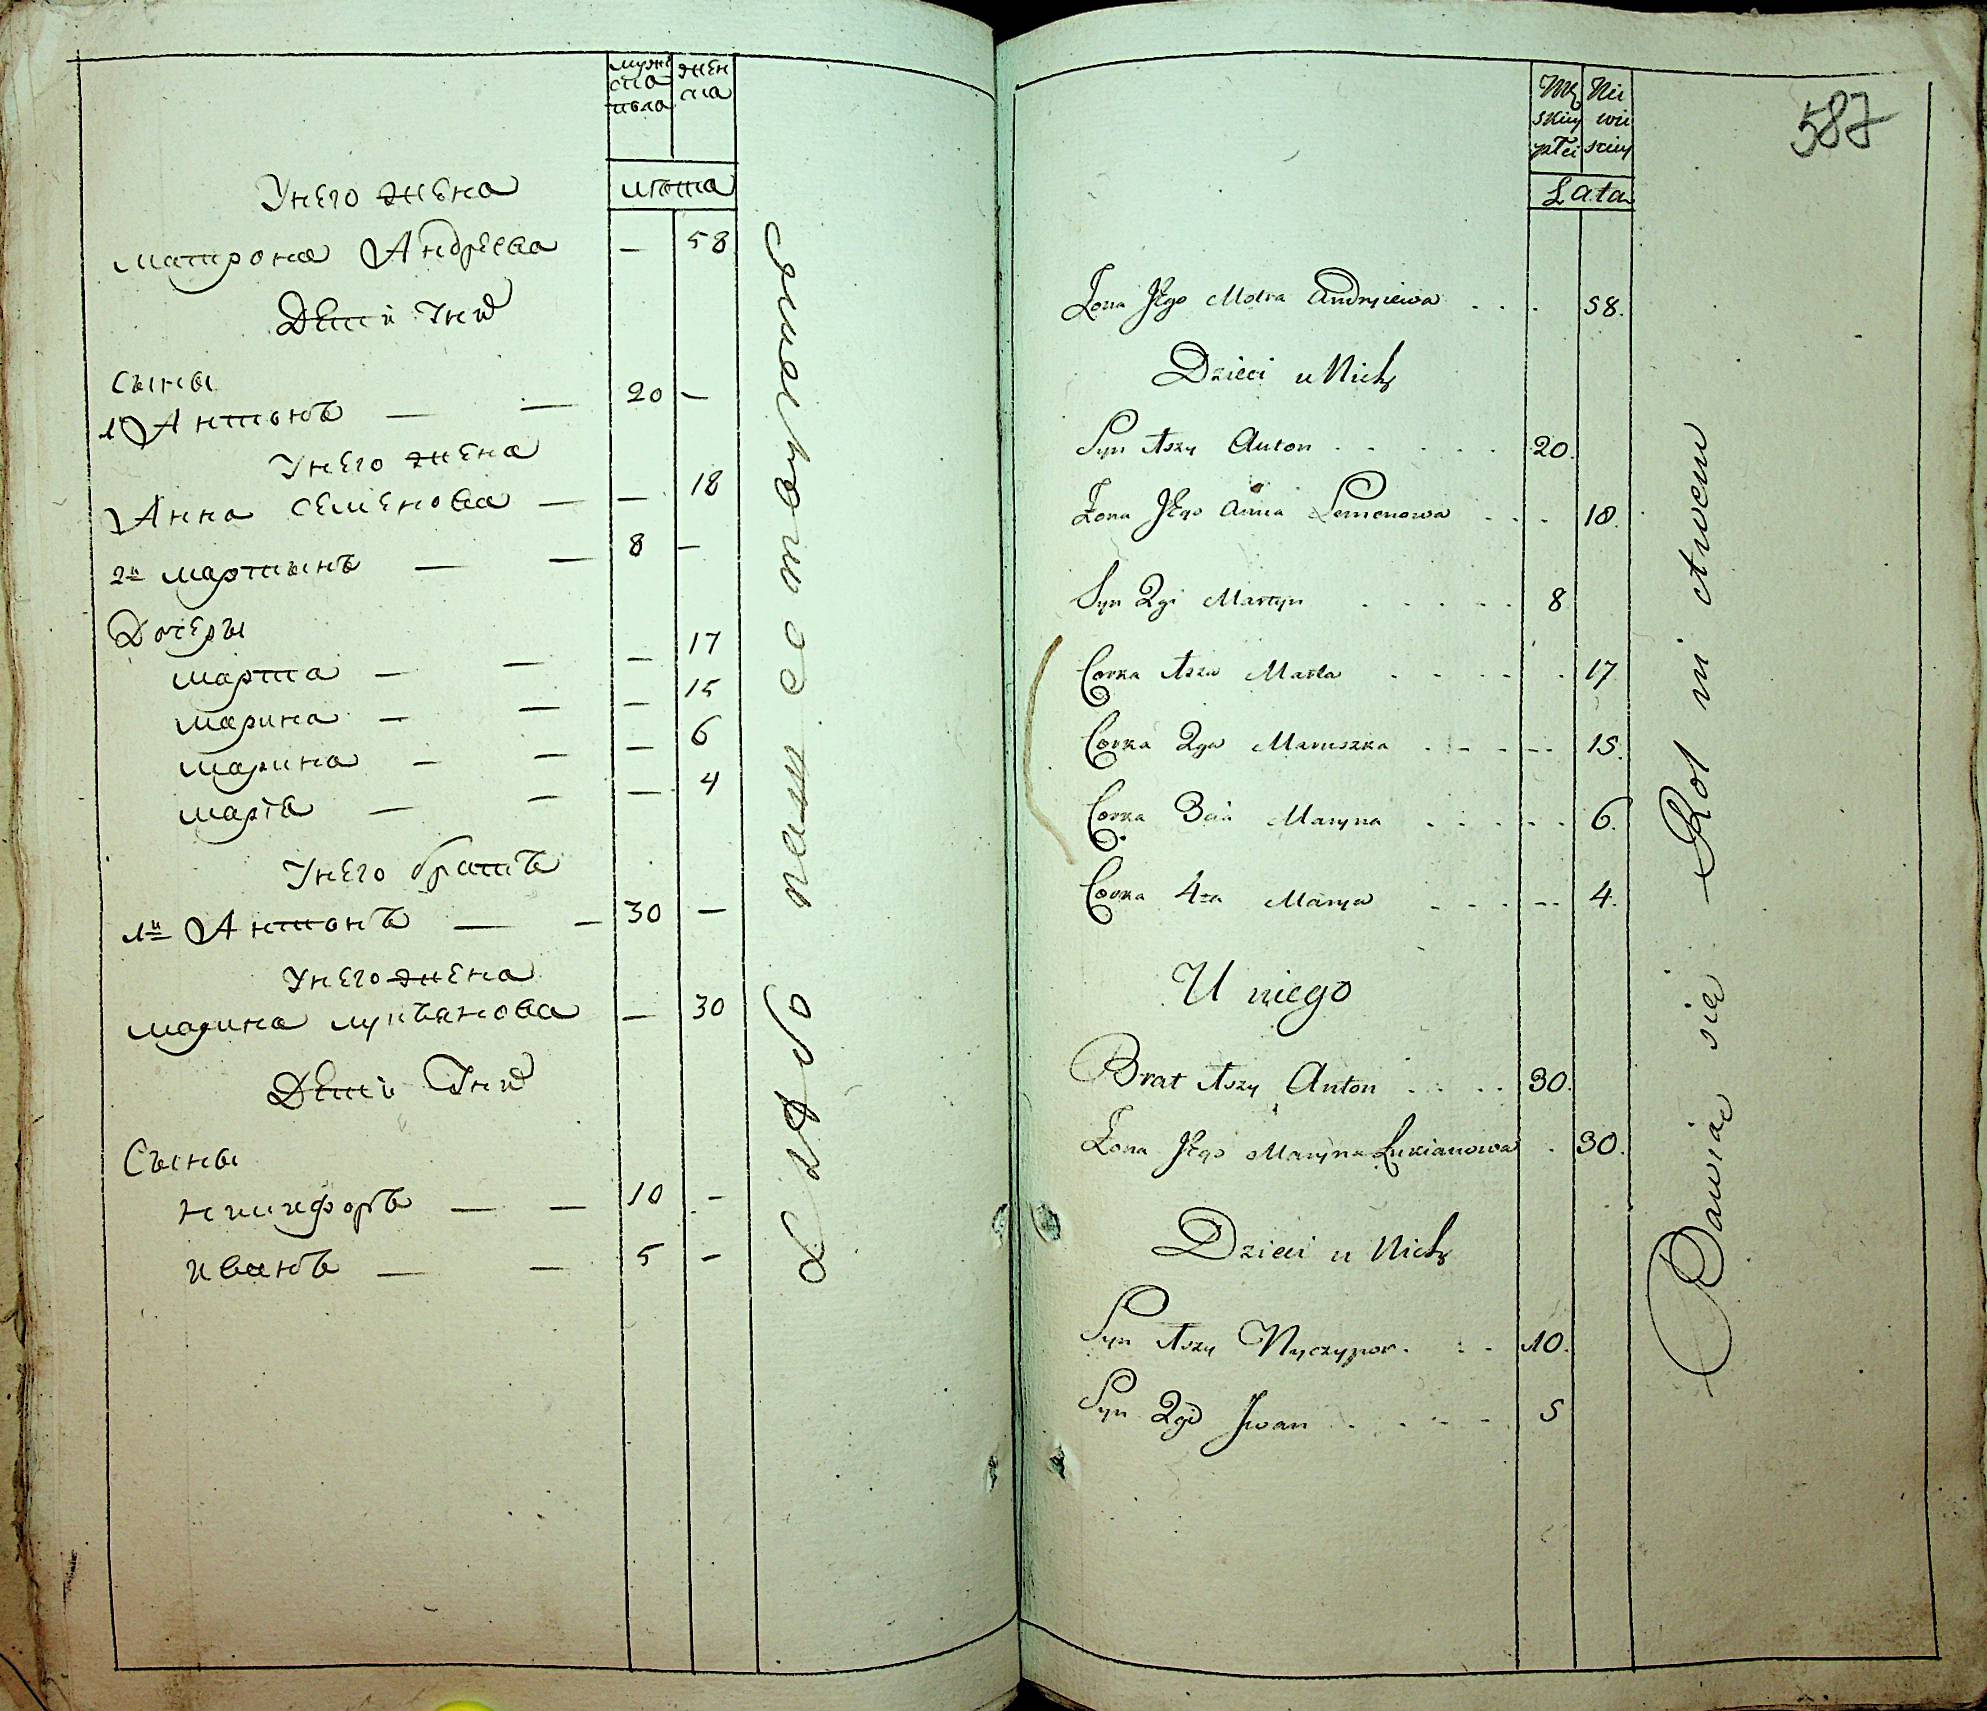 мужеска пола
женска
лѣта
Унего жена
матрона Андреева — 58
Дѣти Уних
Сыны
1й Антонъ — — 20 —
Унего жена
Анна семенова — — 18
2й мартынъ — — 8 —
Дочеры
марта — — — 17
марина — — — 15
марина — — — 6
маря — — — 4
Унего братъ
1й Антонъ — — 30 —
Унего жена
марина лукъянова — 30
Дѣти Уних
Сыны
никифоръ — — 10 —
иванъ — — 5 —
Męskiey płci
Niewieskiey
Lata
587
Żona Jego Motra Andryiewa . . . 58.
Dzieci u Nich
Syn 1szy Anton . . . . . 20.
Żona Jego Anna Semenowa . . . 18.
Syn 2gi Martyn . . . . . 8
Corka 1sza Marta . . . . . 17
Corka 2ga Maruszka . . . . . 15.
Corka 3cia Maryna . . . . . 6.
Corka 4ta Marya . . . . . 4.
U niego
Brat 1szy Anton . . . . 30.
Żona Jego Maryna Lukianowa . 30.
Dzieci u Nich
Syn 1szy Nyczypor . . . 10.
Syn 2gi Iwan . . . . 5
Bawiąc się Rol ni ctwem